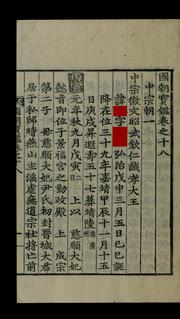 國朝寶鑑卷之十八
中宗朝一
中宗徽文昭武欽仁誠孝大王
諱 字 弘治戊申三月五日己巳誕
降在位三十九年嘉靖甲辰十一月十五
日庚戌昇遐壽五十七葬靖陵
元年秋九月戊寅 上以 慈順大妃
懿旨即位于景福宮之勤政殿 上 成宗
第二子 母慈順大妃尹氏初封晉城大君
居于私邸時燕山主淫虐無道宗社將亡前